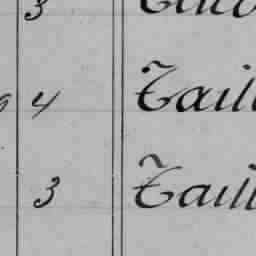 3
4 Taill
3 Taill